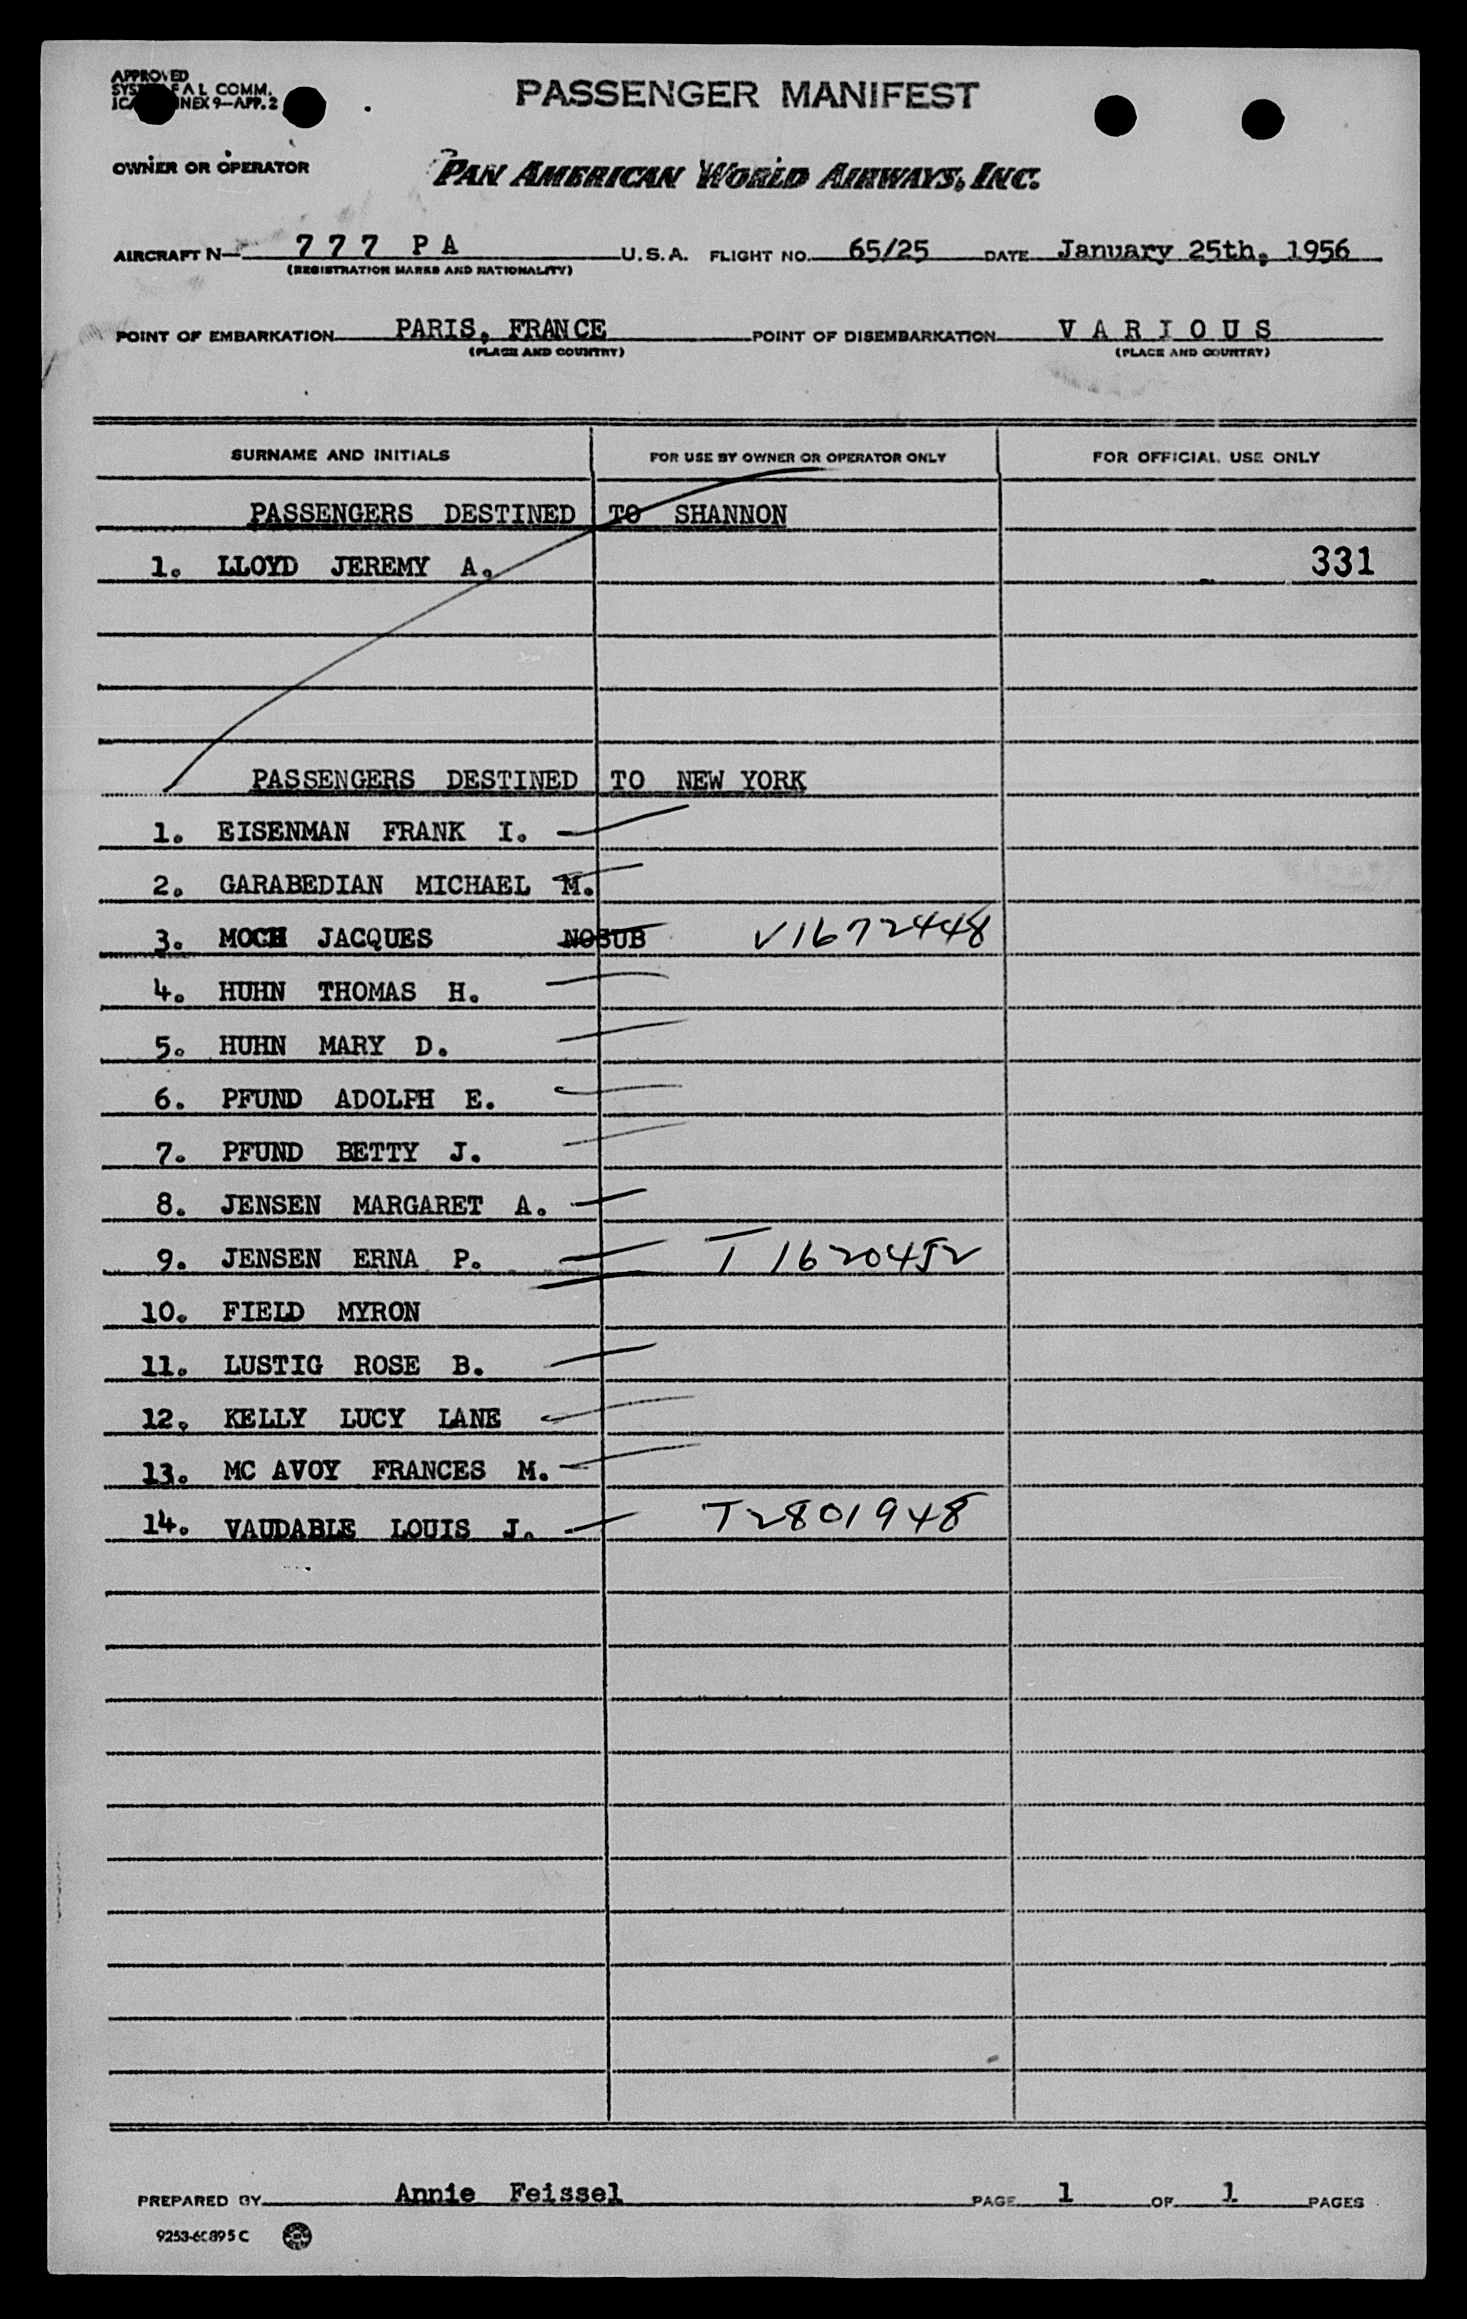 APPROVED
FAL COMM.
NEX 9—APP. 2
PASSENGER MANIFEST
OWNER OR OPERATOR PAN AMERICAN WORLD AIRWAYS, INC.
AIRCRAFT N— 777 PA U.S.A. FLIGHT NO. 65/25 DATE January 25th, 1956
(REGISTRATION MARKS AND NATIONALITY)
POINT OF EMBARKATION PARIS, FRANCE POINT OF DISEMBARKATION VARIOUS
(PLACE AND COUNTRY) (PLACE AND COUNTRY)
SURNAME AND INITIALS FOR USE BY OWNER OR OPERATOR ONLY FOR OFFICIAL USE ONLY
PASSENGERS DESTINED TO SHANNON
1. LLOYD JEREMY A. 331
PASSENGERS DESTINED TO NEW YORK
1. EISENMAN FRANK I.
2. GARABEDIAN MICHAEL M.
3. MOCH JACQUES NOSUB V1672448
4. HUHN THOMAS H.
5. HUHN MARY D.
6. PFUND ADOLPH E.
7. PFUND BETTY J.
8. JENSEN MARGARET A.
9. JENSEN ERNA P. T 1620452
10. FIELD MYRON
11. LUSTIG ROSE B.
12. KELLY LUCY LANE
13. MC AVOY FRANCES M.
14. VAUDABLE LOUIS J. T2801948
PREPARED BY Annie Feissel PAGE 1 OF 1 PAGES